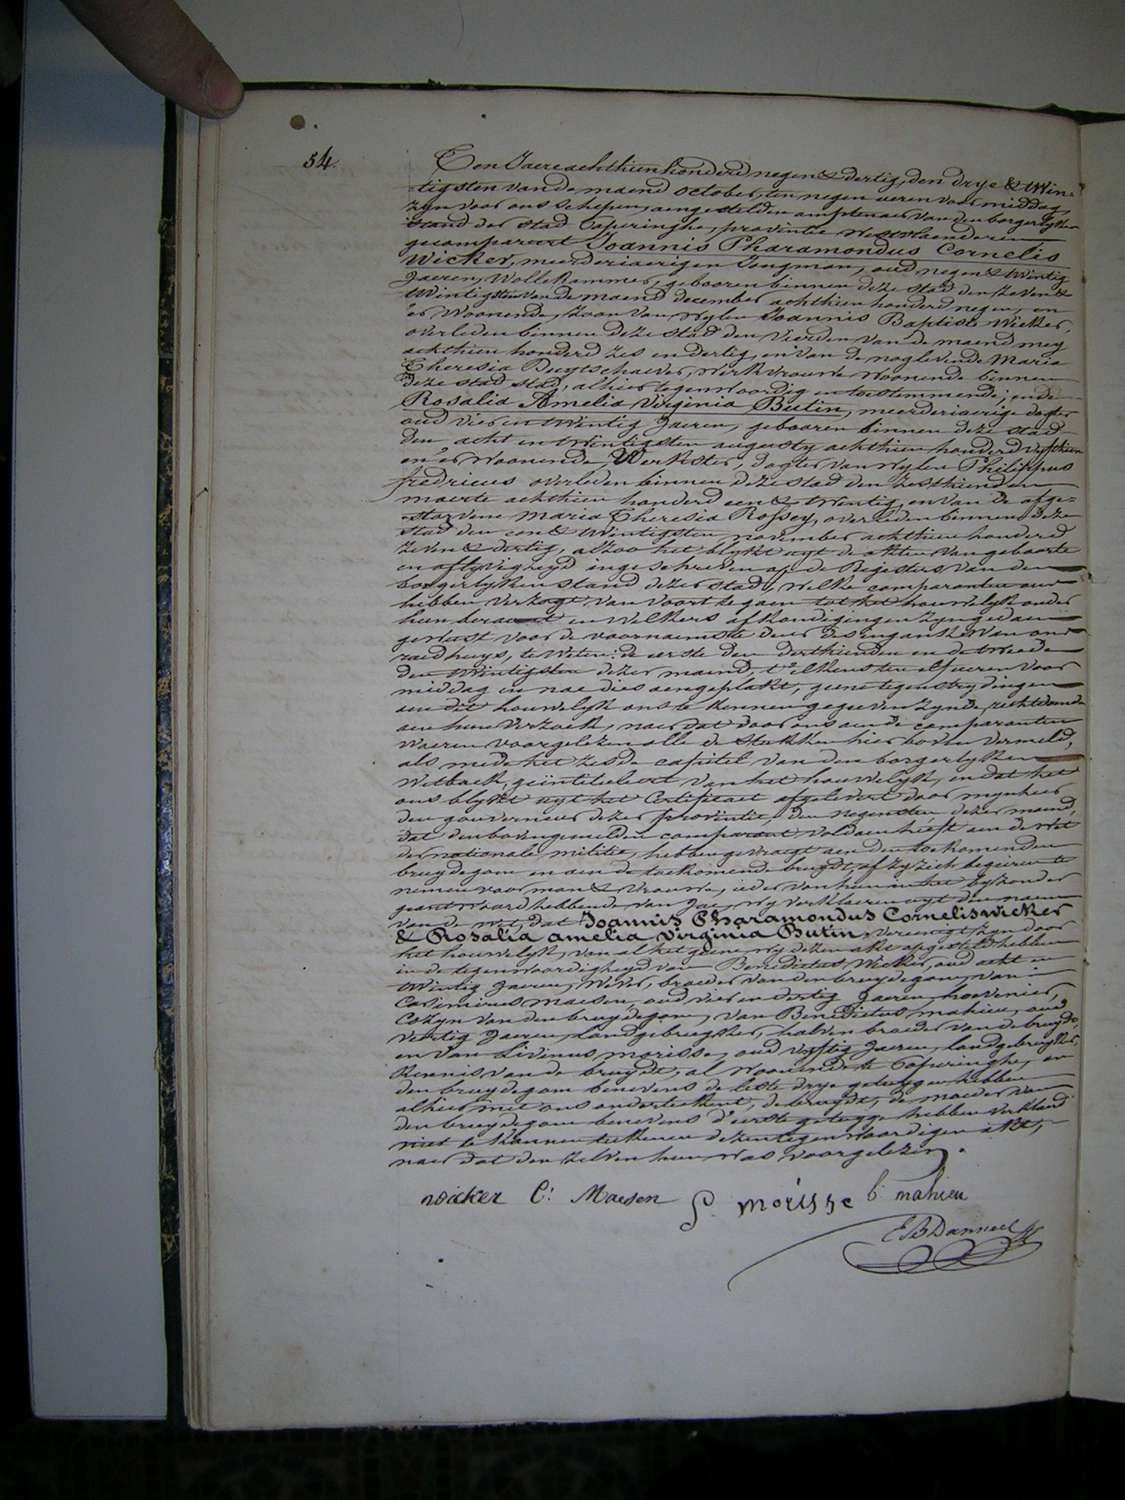 54.
Ten Jaere achthien honderd negen & dertig, den drye & twin-
tigsten van de maend october, ten negen ueren voor middag,
zyn voor ons schepen, aengestelden amptenaer van den borgerlyken
stand der stad Poperinghe, provintie Westvlaenderen
gecompareert Joannis Pharamondus Cornelis
Wicker, meerderjaerigen Jongman, oud negen & twintig
Jaeren, Wollekammer, gebooren binnen deze stad den zeven &
twintigsten van de maend december achthien honderd negen, en
er Woonende, zoon van wylen Joannis Baptiste Wicker,
overleden binnen deze stad den vierden van de maend mey
achthien honderd zes en dertig, en van de noglevende Maria
Theresia Duytschaever, werkvrouwe woonende binnen
deze stad stad, alhier tegenwoordig en toestemmende; ende
Rosalia Amelia Virginia Butin, meerderjaerige dogter
oud vier en twintig Jaeren, gebooren binnen deze stad
den acht en twintigsten augusty achthien honderd vyfthien
en er Woonende, Werkster, dogter van wylen Philippus
fredricus overleden binnen deze stad den zesthienden
maerte achthien honderd een & twintig, en van de afge-
storvene Maria Theresia Rossey, overleden binnen deze
stad den een & twintigsten november achthien honderd
zeven & dertig, alzoo het blykt uyt de akten van geboorte
en aflyvigheyd ingeschreven op de Registers van den
borgerlyken stand dezer stad, welke comparanten ons
hebben verzogt van voort te gaen tot het houwelyk onder
hun beraemt en welkers afkondigingen zyn gedaen
geweest voor de voornaemste deur des ingank van ons
raedhuys, te weten: de eerste den derthienden en de tweede
den twintigsten dezer maend, t'elkens ten elf ueren voor
middag en nae dies aengeplakt, geene tegenstrydingen
aen dit houwelyk ons te kennen gegeven zynde, rechtdoende
aen hun verzoek, naer dat door ons aen de comparanten
waeren voorgelezen alle de stukken hier boven vermeld,
als mede het zesde capitel van den borgerlyken
Wetboek, geïntituleert van het houwelyk, en dat het
ons blykt uyt het Certificaet afgelevert door mynheer
den gouverneur dezer provintie, den negensten dezer maend,
dat den bovengemelden comparant voldaen heeft aen de Wet
der nationale militie, hebben gevraegt aen den toekomenden
bruydegom en aen de toekomende bruydt, of zy zich begeeren te
nemen voor man & vrouwe, ieder van hun in het byzonder
geantwoord hebbende van Jae, wy verklaeren uyt den naem
van de wet, dat Joannis Pharamondus Cornelis Wicker
& Rosalia amelia virginia Butin, vereenigt zyn door
het houwelyk, van al het geene wy dezen akt opgestelt hebben
in de tegenwoordigheyd van Benedictus Wicker, oud acht en
twintig Jaeren, Wever, broeder van den bruydegom, van
Casimirus Maesen, oud vier en dertig Jaeren, hovenier,
Cozyn van den bruydegom, van Benedictus mahieu, oud
veertig Jaeren, Landgebruyker, halven broeder van de bruydt,
en van Livinus morisse, oud vyftig Jaeren, landgebruyker,
Kennis van de bruydt, al woonende te Poperinghe, en
den bruydegom benevens de leste drye getuygen hebben
alhier met ons onderteekent, de bruydt, de moeder van
den bruydegom benevens d'eerste getuyge hebben verklaerd
niet te kunnen teekenen dezen tegenwoordigen akt,
naer dat den zelven hun was voorgelezen.
wicker C: Maesen L. morisse b: mahieu